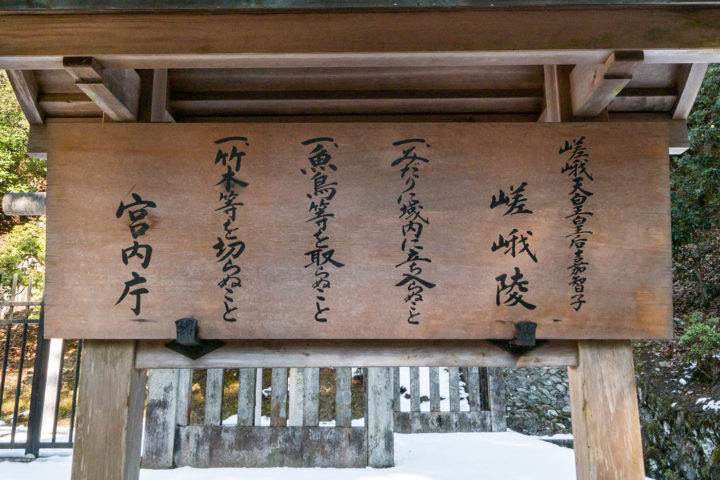 嵯峨天皇皇后嘉智子
嵯峨陵
一、みだりに域内に立ち入らぬこと
一、魚鳥等を取らぬこと
一、竹木等を切らぬこと
宮内庁